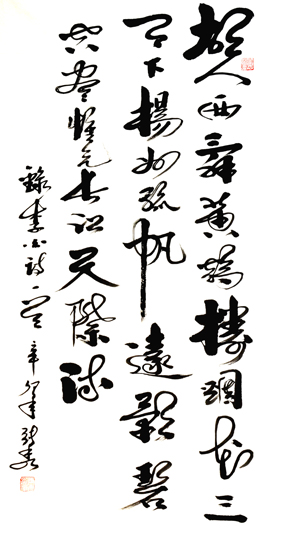 故人西辭黃鶴樓烟花三
月下揚州孤帆遠影碧
空盡惟見長江天際流
錄李白詩一首 辛卯年